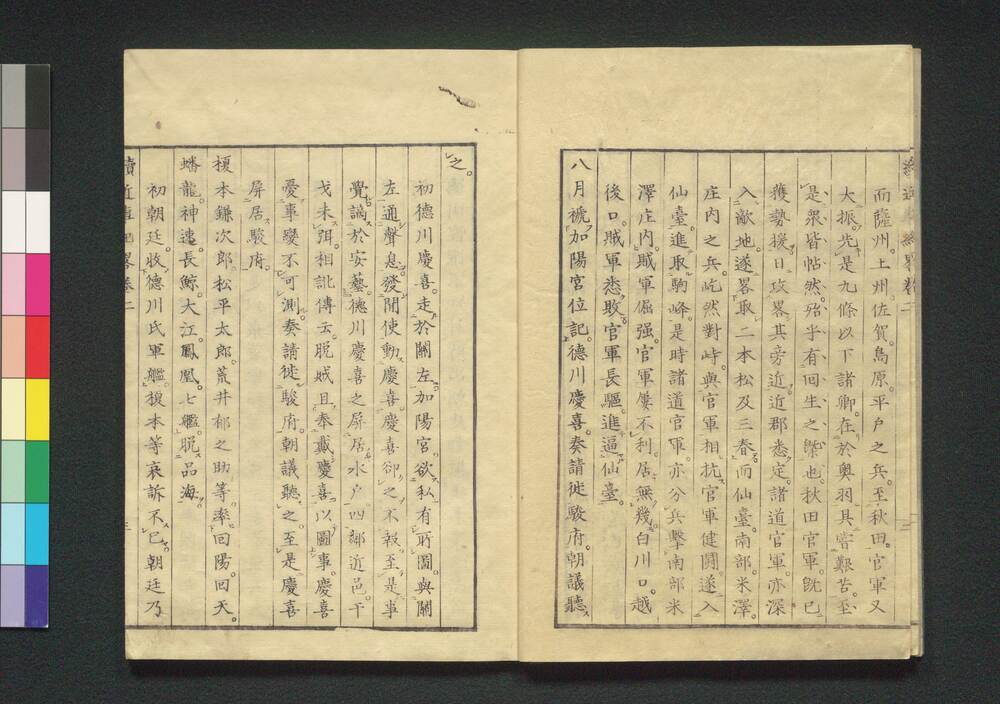 而薩州。上州佐賀。島原。平戸之兵。至秋田。官軍又
大振。先是九條以下諸卿。在於奥羽。具嘗艱苦。至
是衆皆帖然。殆乎有回生之槩也。秋田官軍。既已
獲勢援。日攻畧其旁近。近郡悉定。諸道官軍。亦深
入敵地。遂畧取二本松及三春。而仙臺。南部。米澤。
庄内之兵。屹然對峙。與官軍相抗。官軍健鬪。遂入
仙臺。進取駒峰。是時諸道官軍。亦分兵擊南部米
澤庄内。賊軍倔强。官軍僂不利。居無幾。白川口。越
後口。賊軍悉敗。官軍長驅。進逼仙臺。
八月褫加陽宮位記。德川慶喜。奏請徙駿府。朝議聽
之。
初德川慶喜。走於關左。加陽宮。欲私有所圖。與關
左通聲息。發間使動慶喜。慶喜卻之不報。至是事
覺。謫於安藝。德川慶喜之屏居水戸。四鄰近邑。干
戈未弭。相訛傳云。脱賊且奉戴慶喜以圖事。慶喜
憂事變不可測。奏請徙駿府。朝議聽之。至是慶喜
屏居駿府。
榎本鎌次郎。松平太郎。荒井郁之助等。率回陽。回天。
蟠龍。神速。長鯨。大江。鳳凰。七艦。脱品海。
初朝廷。收德川氏軍艦。榎本等哀訴不已。朝廷乃